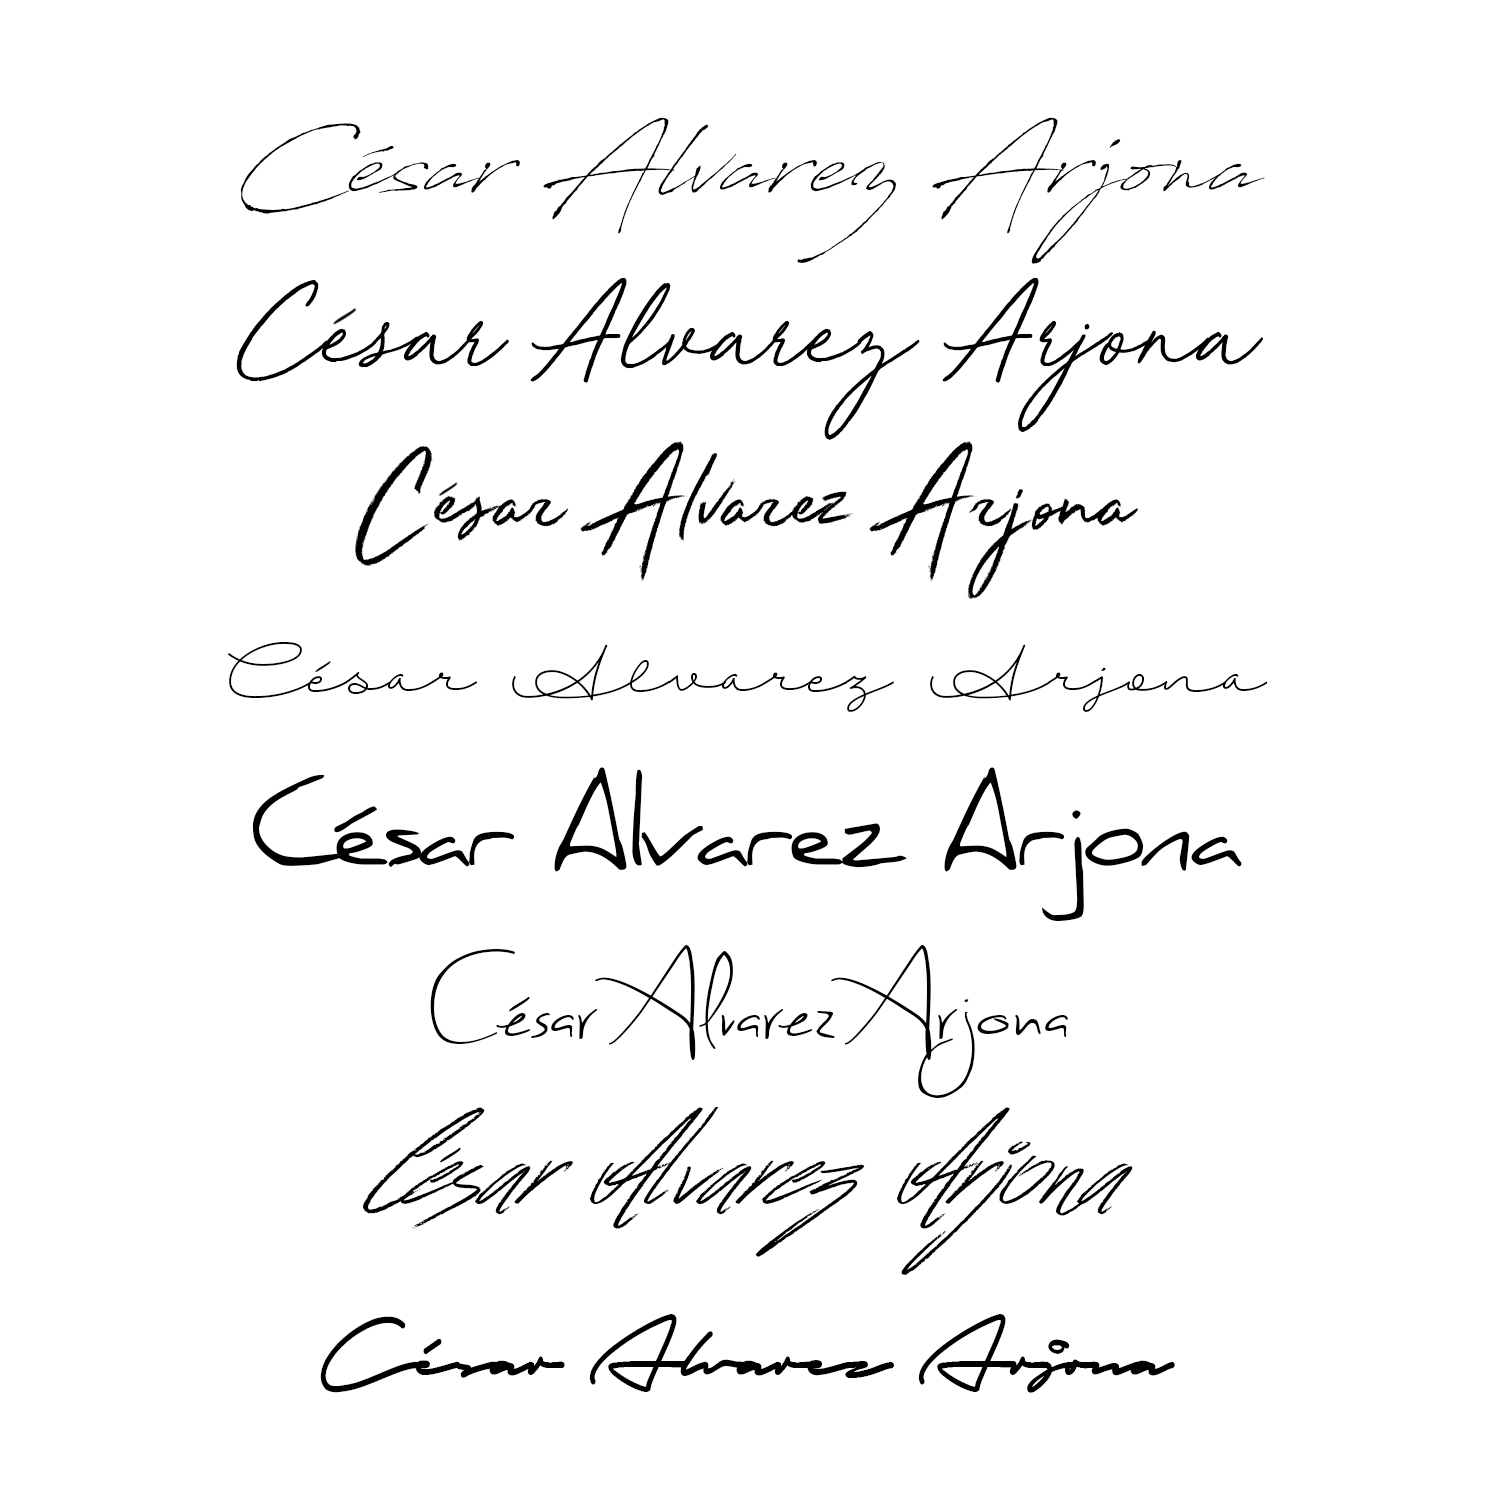 César Alvarez Arjona
César Alvarez Arjona
César Alvarez Arjona
César Alvarez Arjona
César Alvarez Arjona
César Alvarez Arjona
César Alvarez Arjona
César Alvarez Arjona